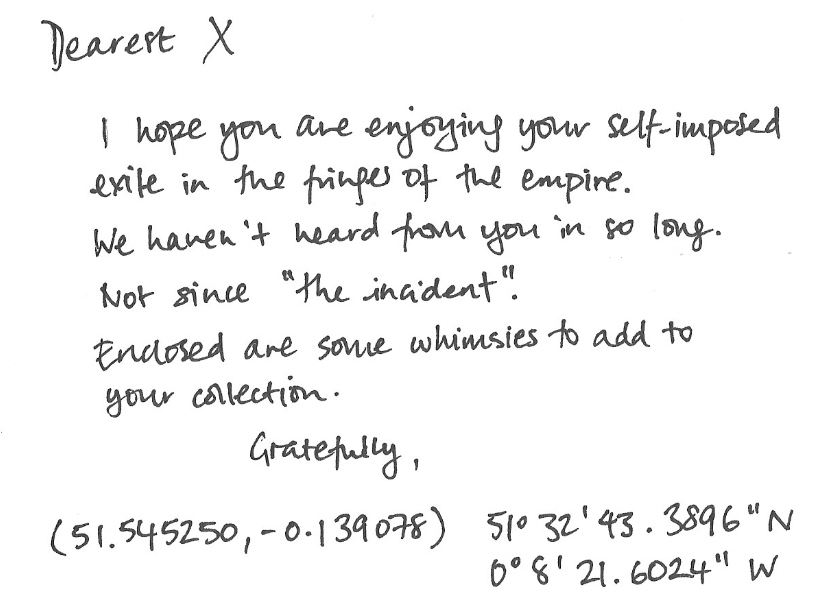 Dearest X
I hope you are enjoying your self-imposed
exile in the fringes of the empire.
We haven't heard from you in so long.
Not since "the incident".
Enclosed are some whimsies to add to
your collection.
Gratefully,
(51.545250, -0.139078) 51° 32' 43.3896" N
0° 8' 21.6024" W